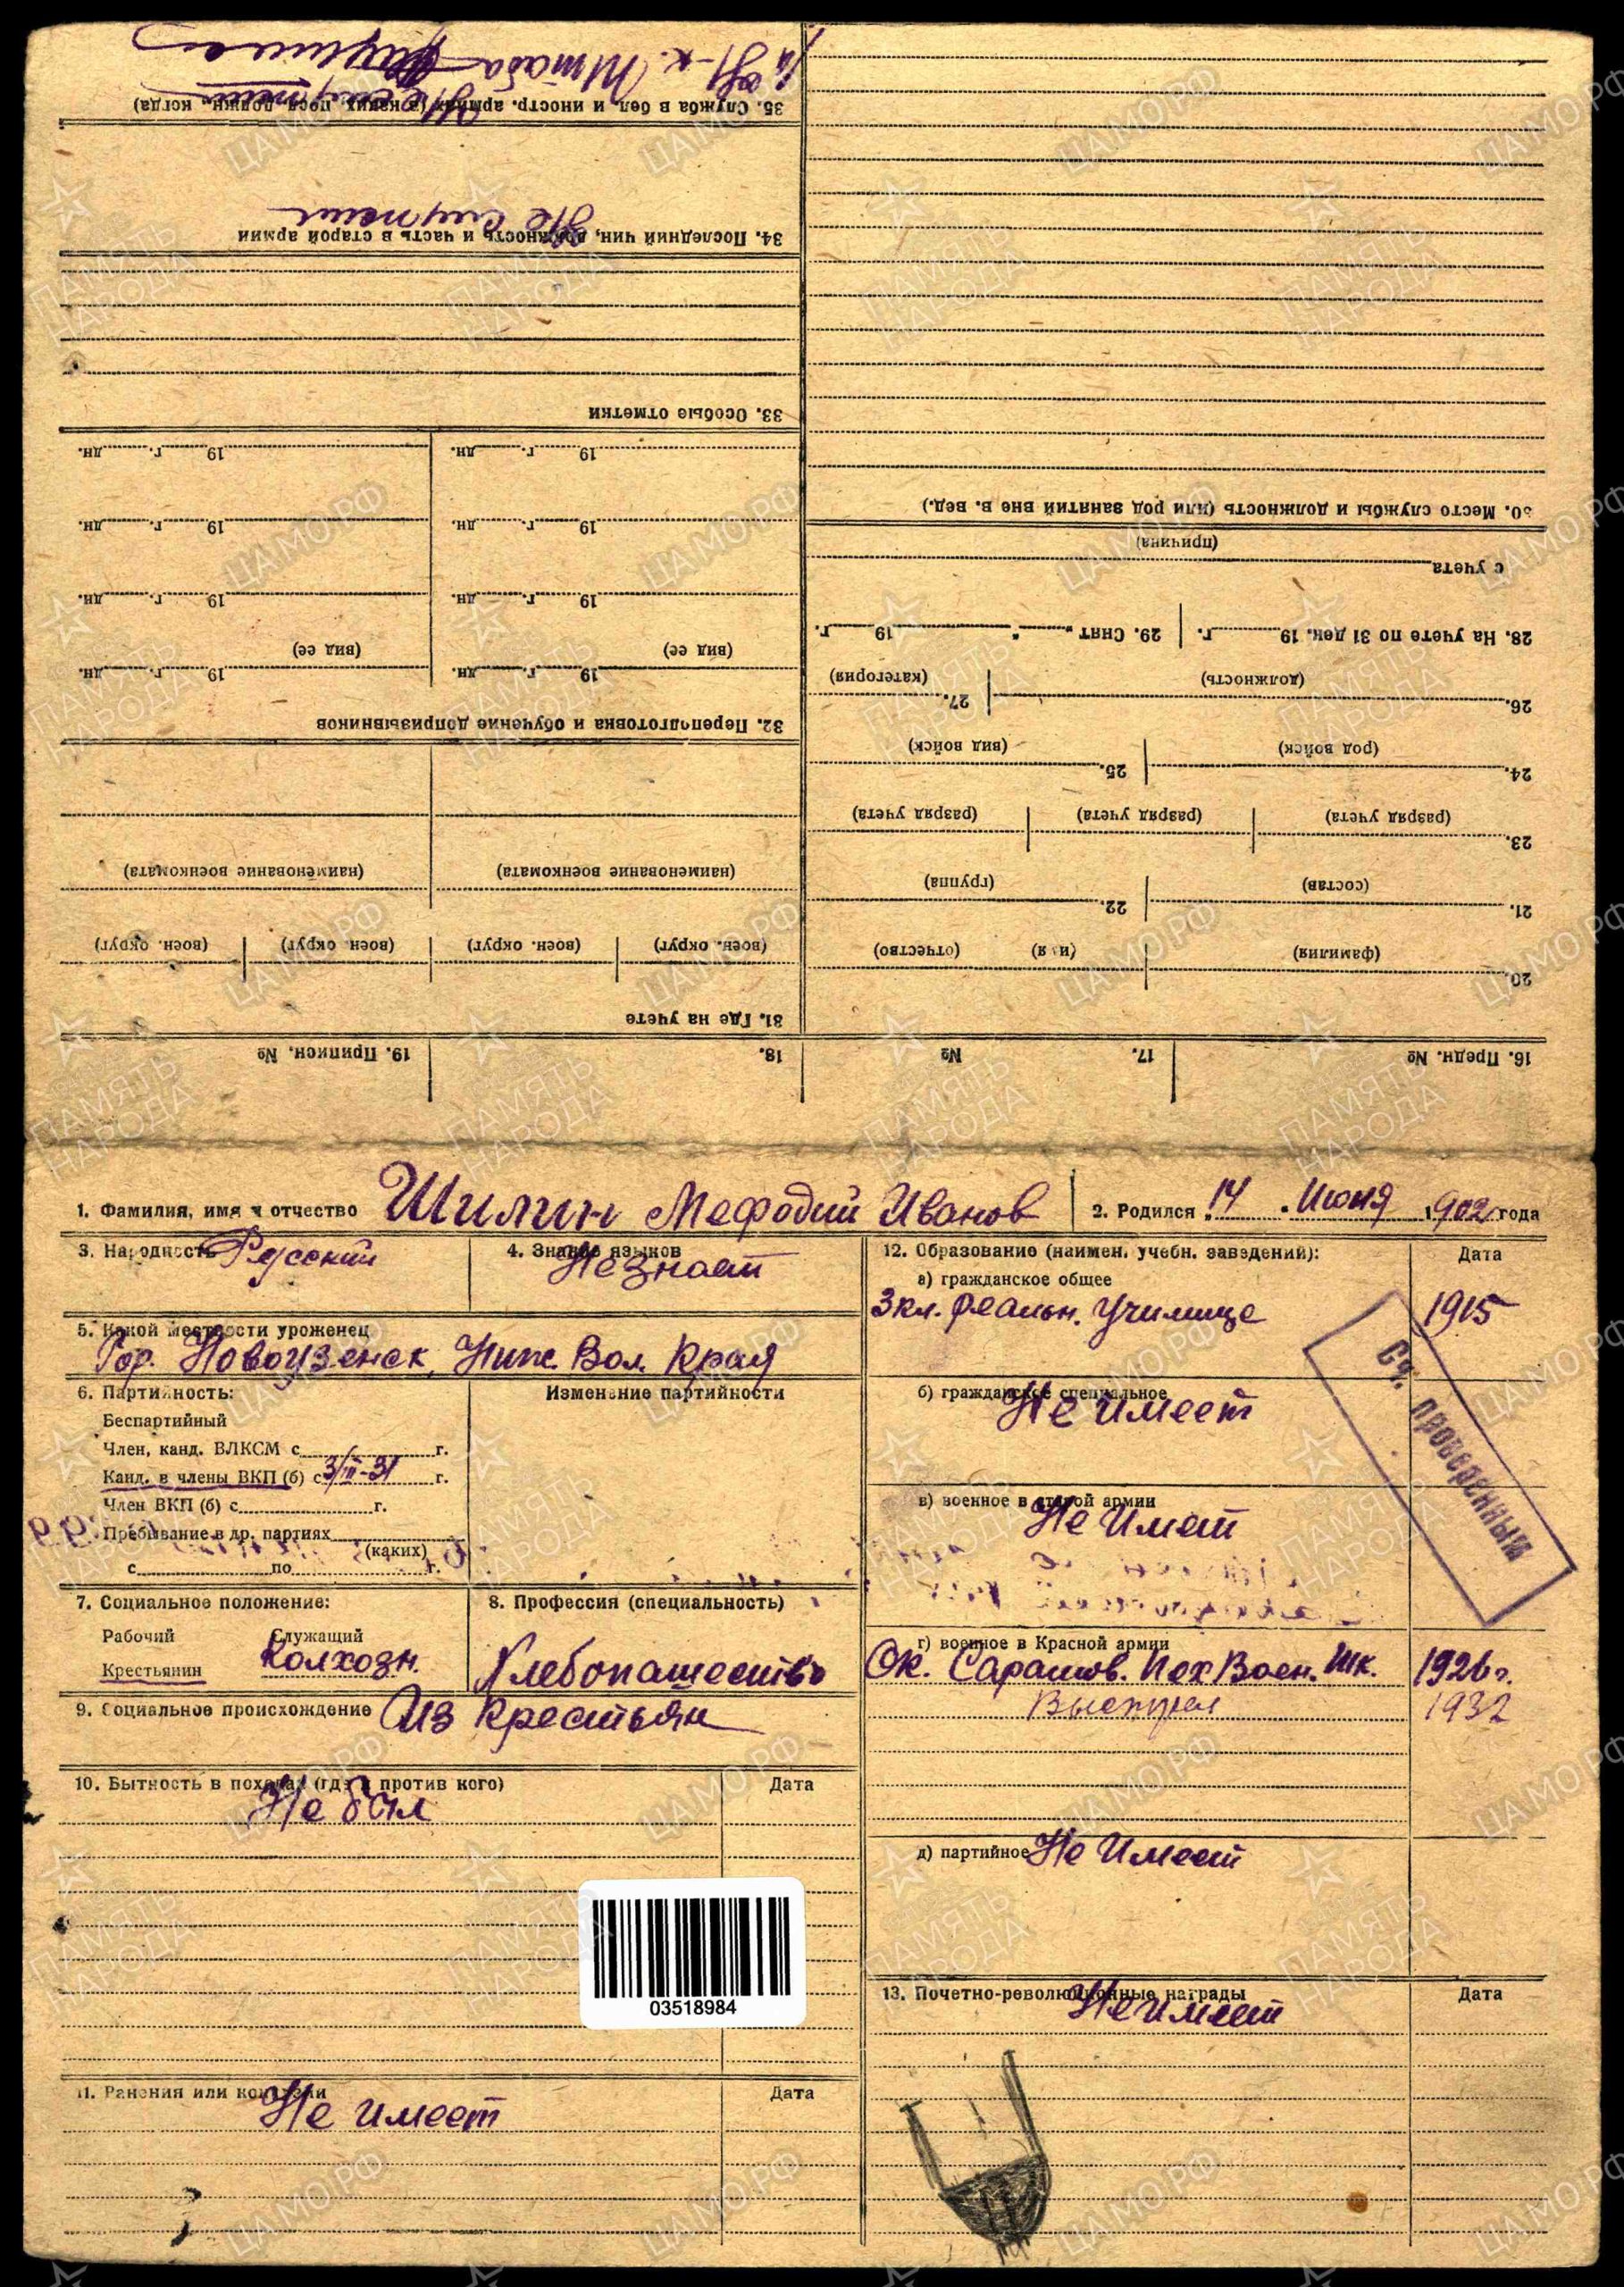 16. Предн. №
17. №
18.
19. Приписн. №
20.
(фамилия) (имя) (отчество)
21. 22.
(состав) (группа)
23.
(разряд учета) (разряд учета) (разряд учета)
24. 25.
(род войск) (вид войск)
26. 27.
(должность) (категория)
28. На учете по 31 дек. 19 г. 29. Снят „ “ 19 г.
с учета
(причина)
30. Место службы и должность (или род занятий вне в. вед.)
31. Где на учете
(воен. округ) (воен. округ) (воен. округ) (воен. округ)
(наименование военкомата) (наименование военкомата)
32. Переподготовка и обучение допризывников
19 г. дн. 19 г. дн.
(вид ее) (вид ее)
19 г. дн. 19 г. дн.
19 г. дн. 19 г. дн.
19 г. дн. 19 г. дн.
33. Особые отметки
34. Последний чин, должность и часть в старой армии
Не служил
35. Служба в бел и иностр. армиях (в каких, посл. должн., когда)
Не служил
Н-к. Штаба
1. Фамилия, имя и отчество Шилин Мефодий Иванов
2. Родился 14 Июня 1902 года
3. Народность Русский
4. Знание языков
Не знает
5. Какой местности уроженец
Гор. Новоузенск, Ниж. Вол. Края
6. Партийность:
Изменение партийности
Беспартийный
Член, канд. ВЛКСМ с г.
Канд. в члены ВКП (б) с 3/III-31 г.
Член ВКП (б) с г.
Пребывание в др. партиях
(каких)
с по г.
7. Социальное положение:
Рабочий Служащий
Крестьянин Колхозн.
8. Профессия (специальность)
Хлебопашество
9. Социальное происхождение Из Крестьян
10. Бытность в походах (где и против кого) Дата
Не был
03518984
11. Ранения или контузии Дата
Не имеет
12. Образование (наимен. учебн. заведений): Дата
а) гражданское общее
3 кл. Реальн. Училище 1915
б) гражданское специальное
Не имеет
в) военное в старой армии
Не имеет
г) военное в Красной армии
Ок. Саратов. Пех Воен. Шк. 1926 г.
Выстрел 1932
д) партийное Не Имеет
13. Почетно-революционные награды Дата
Не имеет
Сч. проверенным
ПАМЯТЬ
НАРОДА
ЦАМО.РФ